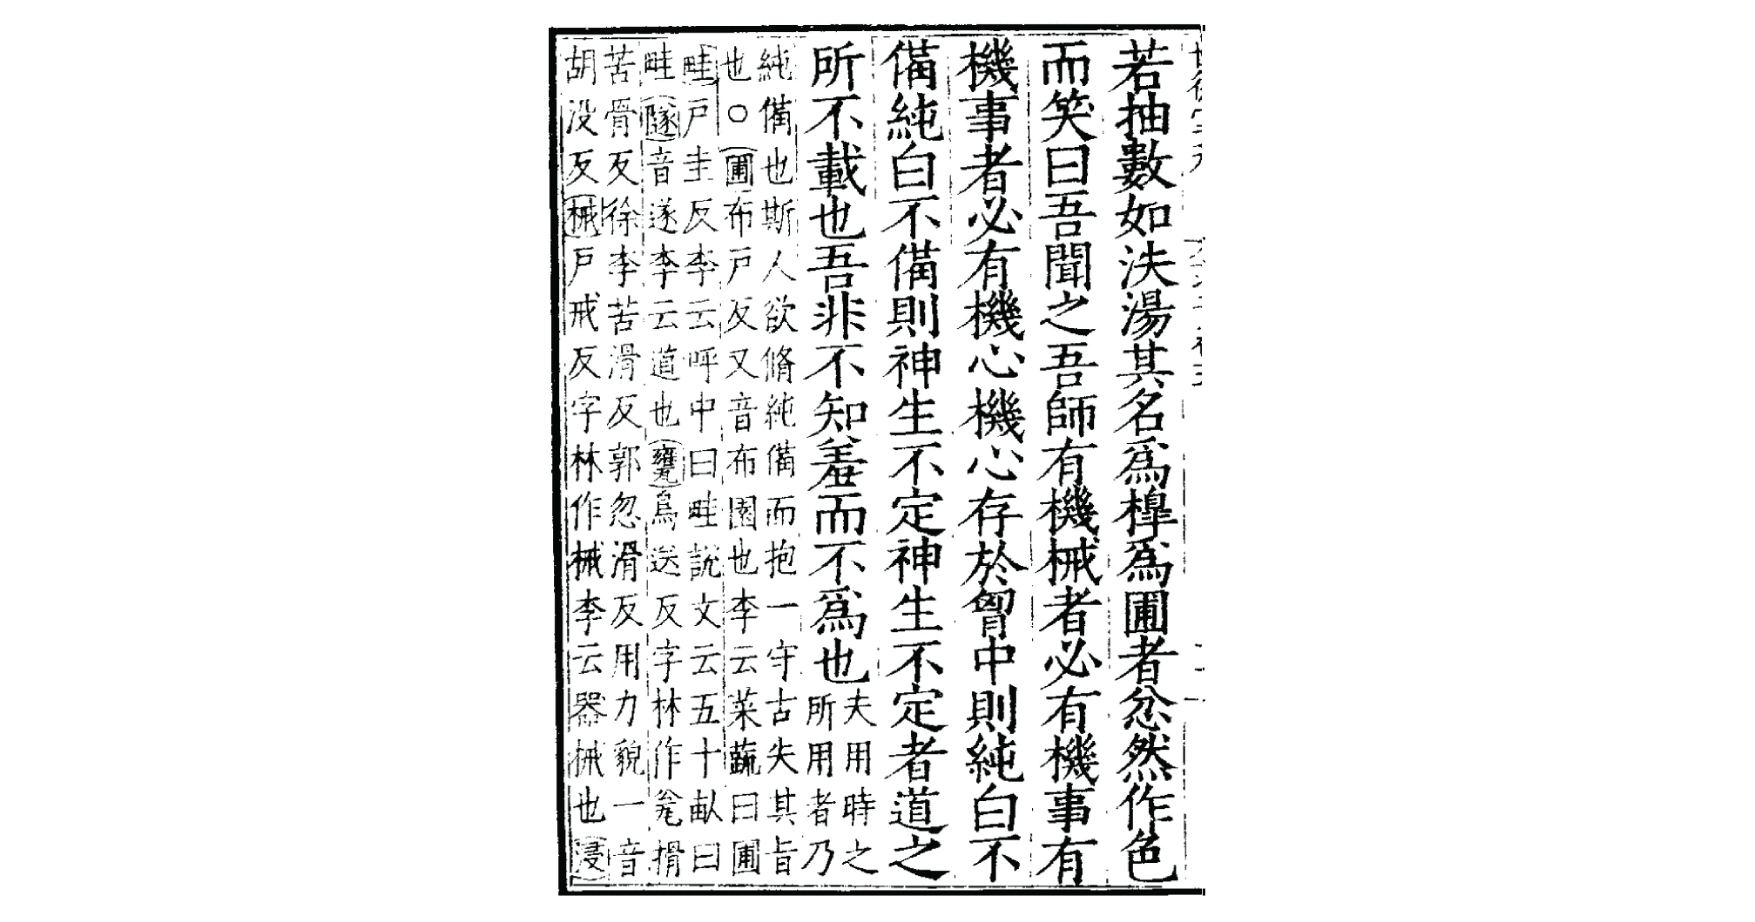 若抽數如泆湯其名爲橰爲圃者忿然作色
而笑曰吾聞之吾師有機械者必有機事有
機事者必有機心機心存於胷中則純白不
備純白不備則神生不定神生不定者道之
所不載也吾非不知羞而不爲也
夫用時之
所用者乃
純備也斯人欲脩純備而抱一守古失其旨
也○圃布戸反又音布園也李云菜蔬曰圃
畦戸圭反李云呼中曰畦說文云五十畝曰
畦隧音遂李云道也甕烏送反字林作瓮搰
苦骨反徐李苦滑反郭忽滑反用力貌一音
胡没反械戸戒反字林作械李云器械也浸